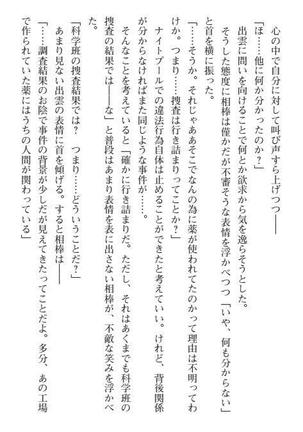 心の中で自分に対して叫び声すら上げつつ――
「ほ……他に何か分かったのか？」
出雲に問いを向けることで何とか欲求から気を逸らそうとした。
そうした態度に相棒は僅かだが不審そうな表情を浮かべつつ「いや、何も分からない」
と首を横に振った。
「そうか。それじゃああそこでなんの為に薬が使われてたのかって理由は不明ってわ
けか。つまり……捜査は行き詰まりってことか？」
ナイトプールでの違法行為自体は止めることができたと考えていい。けれど、背後関係
が分からなければまた同じような事件が……。
そんなことを考えていると「確かに行き詰まりだ。ただし、それはあくまでも科学班の
捜査の結果では――な」と普段はあまり表情を表に出さない相棒が、不敵な笑みを浮かべ
た。
「科学班の捜査結果では？　つまり……どういうことだ？」
あまり見ない出雲の表情に首を傾げる。すると相棒は――
「……調査結果のお陰で事件の背景が少しだが見えてきたってことだよ。多分、あの工場
で作られていた薬にはうちの人間が関わっている」